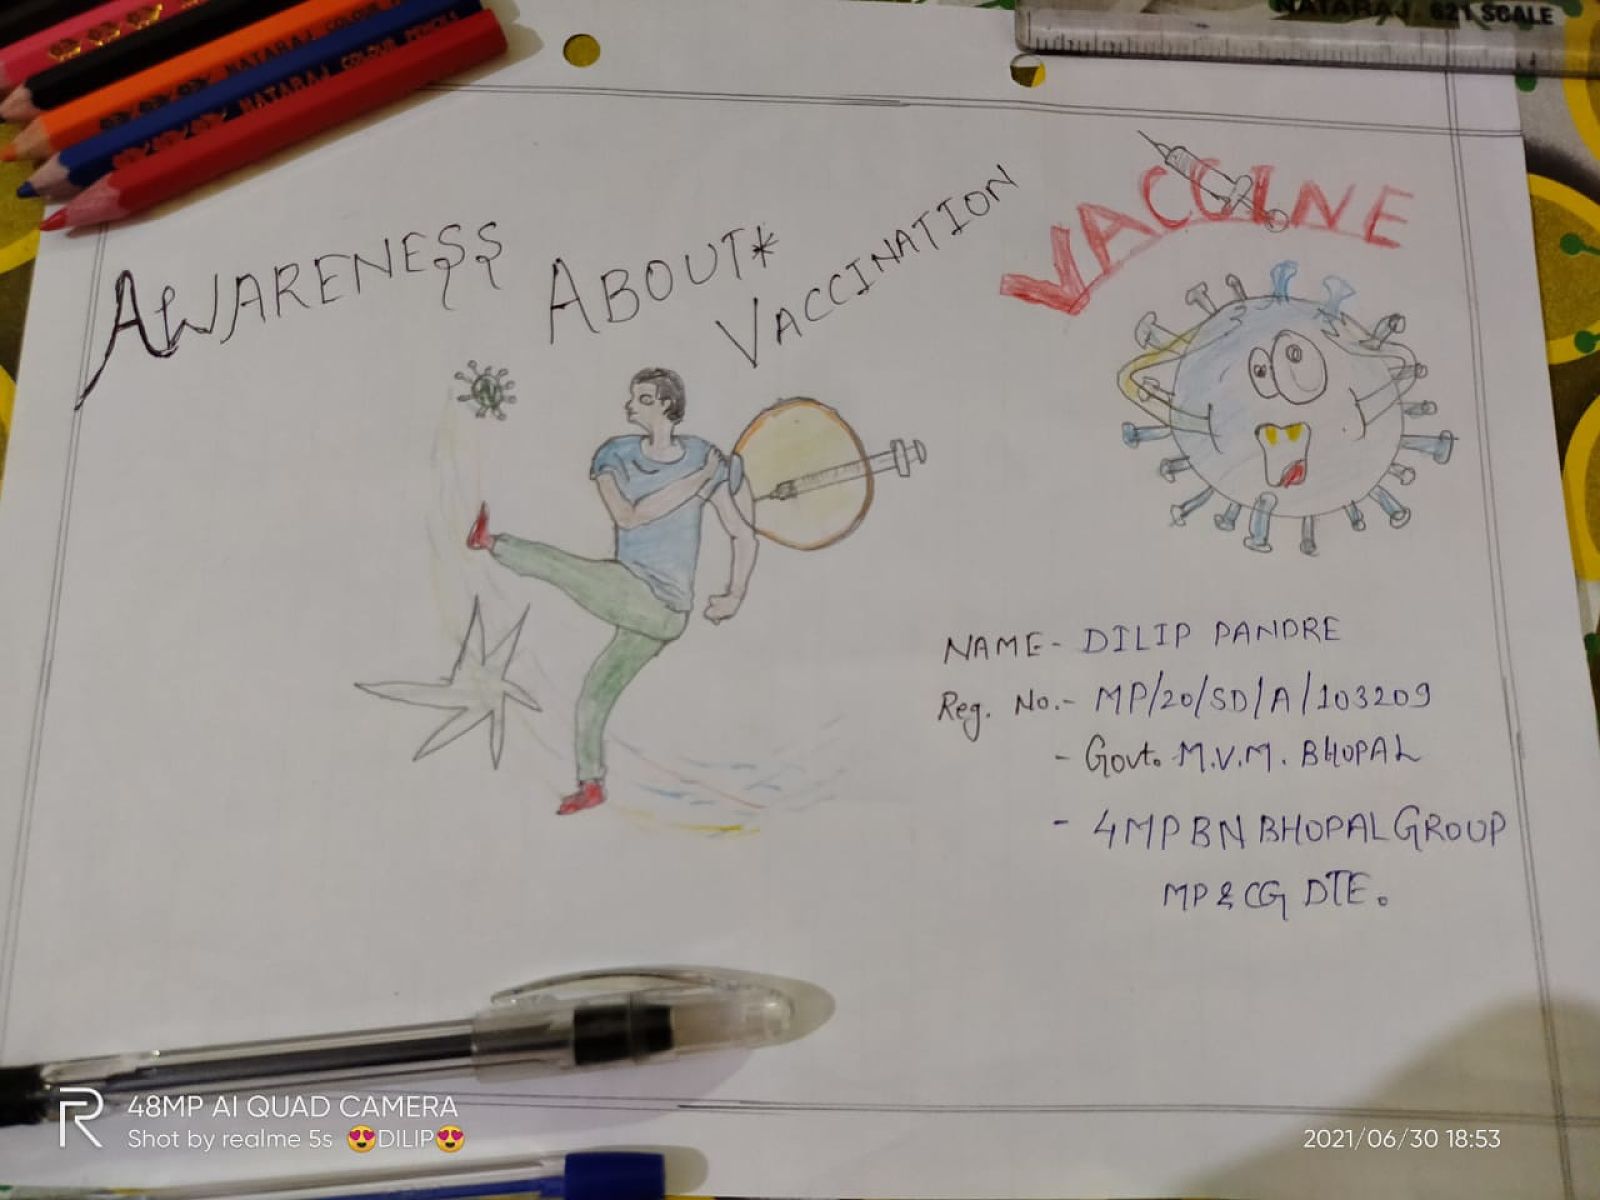 NATARAJ COLOUR
NATARAJ COLOUR PENCILS
NATARAJ. 621 SCALE
AWARENESS ABOUT*
VACCINATION
VACCINE
NAME- DILIP PANDRE
Reg. No.- MP/20/SD/A/103209
- Govt. M.V.M. BHOPAL
- 4MP BN BHOPAL GROUP
MP & CG DTE.
R
48MP AI QUAD CAMERA
Shot by realme 5s 😍DILIP😍
2021/06/30 18:53